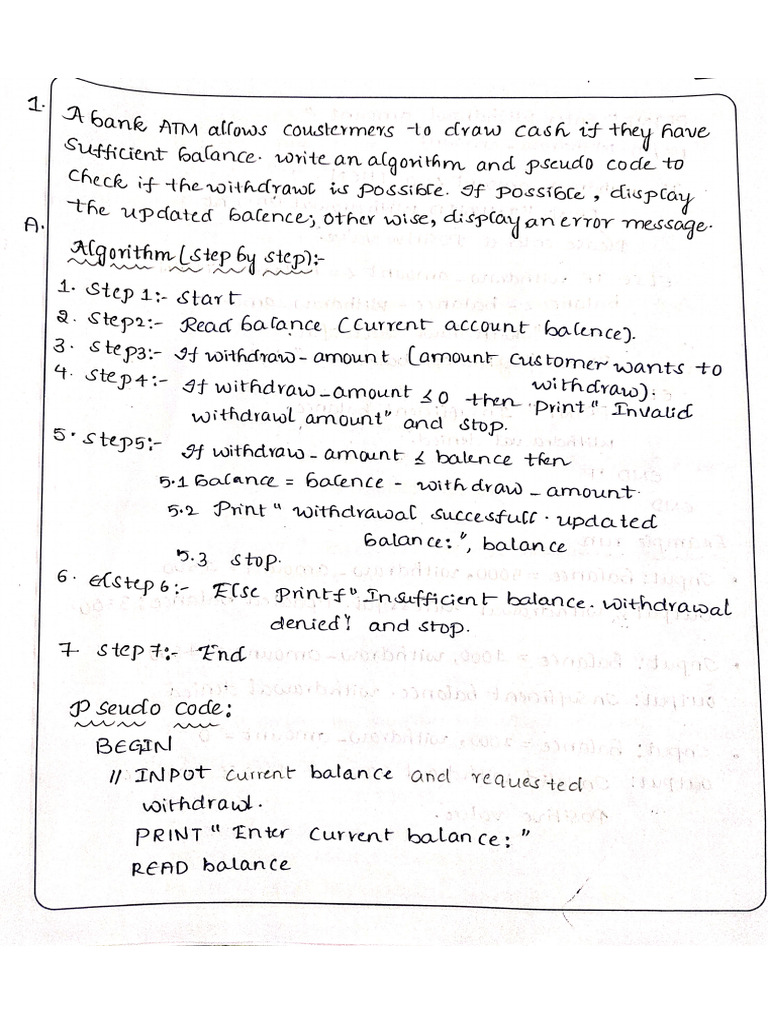 1. A bank ATM allows coustermers to draw cash if they have
sufficient balance. write an algorithm and pseudo code to
check if the withdrawl is possible. If possible, display
the updated balence; other wise, display an error message.
A.
Algorithm (step by step):-
1. Step 1:- Start
2. Step2:- Read balance (current account balence).
3. Step3:- If withdraw-amount (amount customer wants to
withdraw):
4. Step4:- If withdraw_amount ≤0 then Print" Invalid
withdrawl amount" and stop.
5. Step5:- If withdraw-amount ≤ balence then
5.1 balance = balence - withdraw_amount.
5.2 Print " withdrawal successfull. updated
balance:", balance
5.3 stop.
6. Elstep 6:- Else printf" Insufficient balance. withdrawal
denied! and stop.
7. Step 7:- End
Pseudo Code:
BEGIN
// INPOT current balance and requested
withdrawl.
PRINT " Enter current balance: "
READ balance